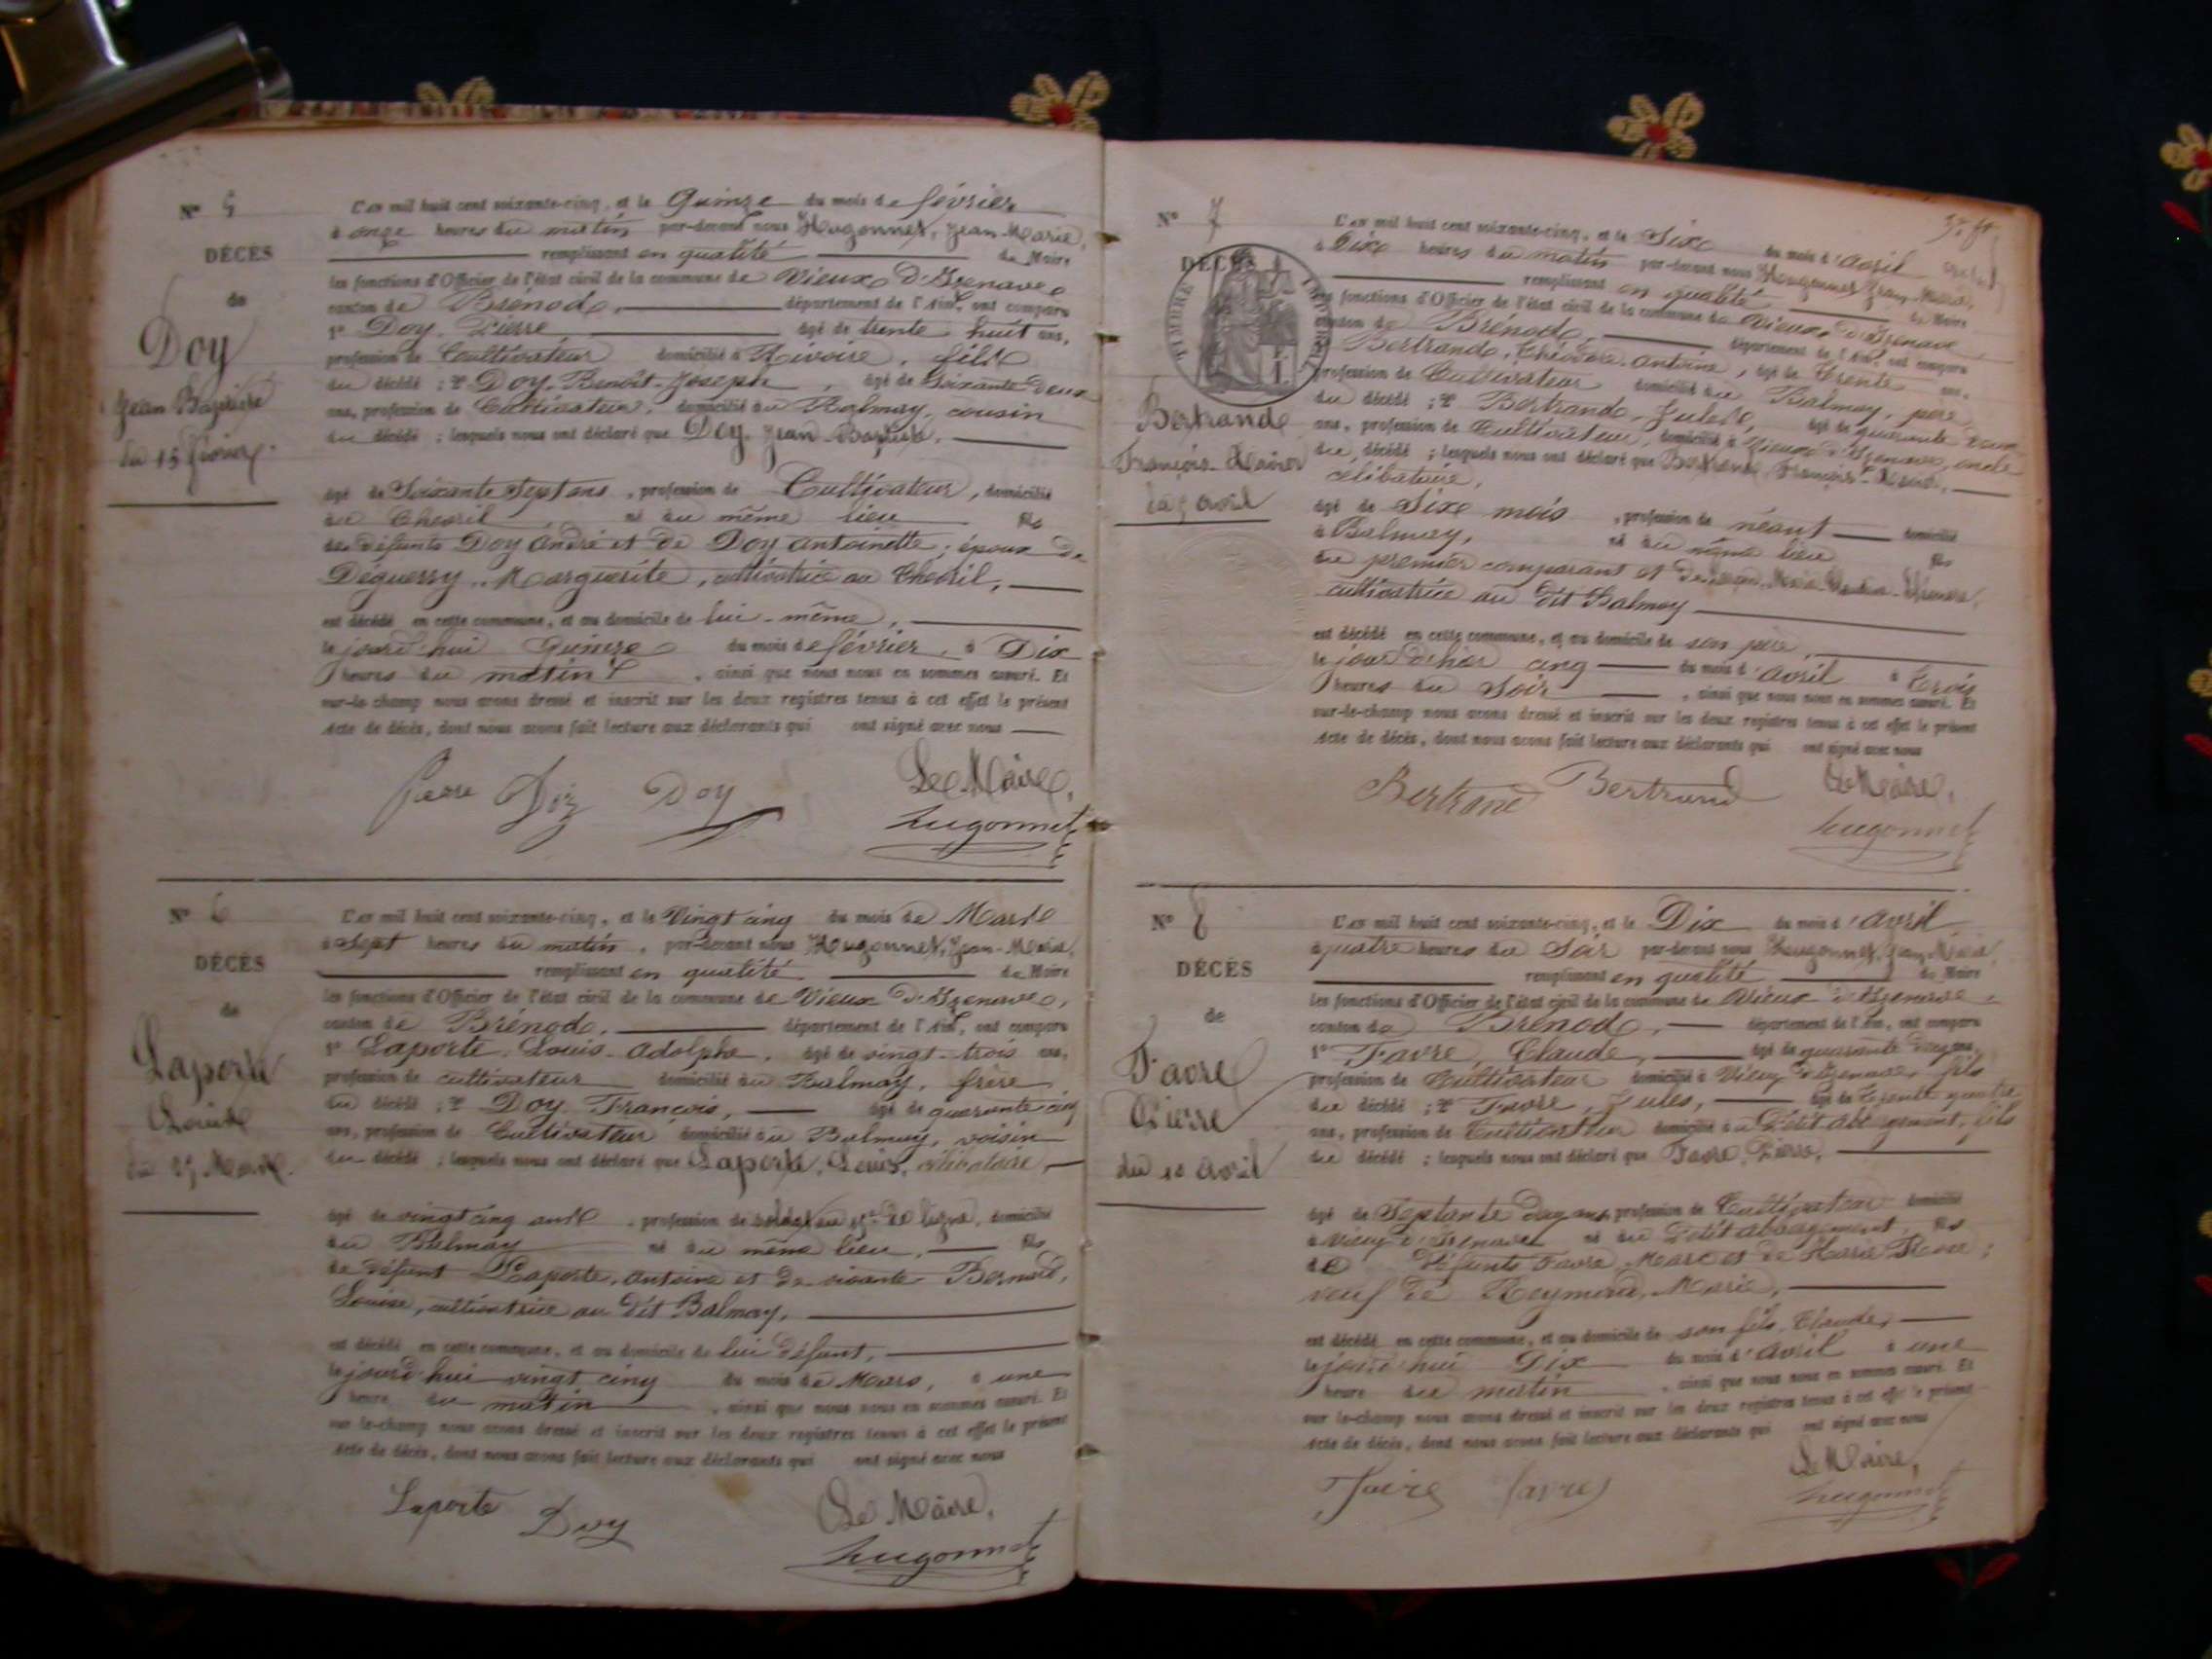 N° 5
DÉCÈS
de
Doy
Jean Baptiste
du 15 février
L'an mil huit cent soixante-cinq, et le Quinze du mois de février
à onze heures du matin par-devant nous Hugonnet, Jean-Marie,
remplissant en qualité de Maire
les fonctions d'Officier de l'état civil de la commune de Vieux d'Izenave
canton de Brénod, département de l'Ain, ont comparu
1° Doy, Pierre âgé de trente huit ans,
profession de Cultivateur domicilié à Rivoire, fils
du décédé ; 2° Doy, Benoît-Joseph, âgé de soixante deux
ans, profession de Cultivateur, domicilié au Balmay, cousin
du décédé ; lesquels nous ont déclaré que Doy, Jean Baptiste,
âgé de Soixante Sept ans, profession de Cultivateur, domicilié
au Chevril né au même lieu fils
de défunts Doy André et de Doy Antoinette ; époux de
Déguerry, Marguerite, cultivatrice au Chevril,
est décédé en cette commune, et au domicile de lui-même,
le jourd'hui Quinze du mois de février, à Dix
heures du matin, ainsi que nous nous en sommes assuré. Et
sur-le-champ nous avons dressé et inscrit sur les deux registres tenus à cet effet le présent
acte de décès, dont nous avons fait lecture aux déclarants qui ont signé avec nous
Pierre Doy Doy Le Maire,
hugonnet
N° 6
DÉCÈS
de
Laporte
Louis
du 25 Mars
L'an mil huit cent soixante-cinq, et le Vingt cinq du mois de Mars
à Sept heures du matin, par-devant nous Hugonnet, Jean-Marie,
remplissant en qualité de Maire
les fonctions d'Officier de l'état civil de la commune de Vieux d'Izenave,
canton de Brénod, département de l'Ain, ont comparu
1° Laporte, Louis-Adolphe, âgé de vingt-trois ans,
profession de cultivateur domicilié au Balmay, frère
du décédé ; 2° Doy François, âgé de quarante cinq
ans, profession de Cultivateur domicilié au Balmay, voisin
du décédé ; lesquels nous ont déclaré que Laporte, Louis, célibataire,
âgé de vingt cinq ans, profession de soldat au de ligne, domicilié
au Balmay né au même lieu, fils
de défunt Laporte, Antoine et de vivante Bernard,
Louise, cultivatrice au dit Balmay,
est décédé en cette commune, et au domicile de lui défunt,
le jourd'hui vingt cinq du mois de Mars, à une
heure du matin, ainsi que nous nous en sommes assuré. Et
sur-le-champ nous avons dressé et inscrit sur les deux registres tenus à cet effet le présent
acte de décès, dont nous avons fait lecture aux déclarants qui ont signé avec nous
Laporte Doy Le Maire,
hugonnet
N° 7
DÉCÈS
TIMBRE IMPÉRIAL
Bertrand
François-
du 5 avril
L'an mil huit cent soixante-cinq, et le Six du mois d'avril
à Dix heures du matin par-devant nous Hugonnet, Jean-Marie,
remplissant en qualité de Maire
les fonctions d'Officier de l'état civil de la commune de Vieux d'Izenave
canton de Brénod, département de l'Ain, ont comparu
Bertrand, Théodore-Antoine, âgé de trente ans,
profession de Cultivateur domicilié au Balmay, père
du décédé ; 2° Bertrand, Jules, âgé de quarante deux
ans, profession de Cultivateur, domicilié à Vieux d'Izenave, oncle
du décédé ; lesquels nous ont déclaré que Bertrand, François-
célibataire,
âgé de Six mois, profession de néant domicilié
à Balmay, né au même lieu fils
du premier comparant et de
cultivatrice au dit Balmay
est décédé en cette commune, et au domicile de son père,
le jour d'hier cinq du mois d'avril à trois
heures du soir, ainsi que nous nous en sommes assuré. Et
sur-le-champ nous avons dressé et inscrit sur les deux registres tenus à cet effet le présent
acte de décès, dont nous avons fait lecture aux déclarants qui ont signé avec nous
Bertrand Bertrand Le Maire,
hugonnet
N° 8
DÉCÈS
de
Favre
Pierre
du 10 avril
L'an mil huit cent soixante-cinq, et le Dix du mois d'avril
à quatre heures du Soir par-devant nous Hugonnet, Jean-Marie,
remplissant en qualité de Maire
les fonctions d'Officier de l'état civil de la commune de Vieux d'Izenave,
canton de Brénod, département de l'Ain, ont comparu
1° Favre, Claude, âgé de quarante ans,
profession de Cultivateur domicilié à Vieux d'Izenave, fils
du décédé ; 2° Favre, Jules, âgé de trente quatre
ans, profession de Cultivateur domicilié au Petit Abergement, fils
du décédé ; lesquels nous ont déclaré que Favre, Pierre,
âgé de Septante ans, profession de Cultivateur domicilié
à Vieux d'Izenave né au Petit Abergement fils
de défunts Favre, Marc et de Marie ;
veuf de Reymond, Marie,
est décédé en cette commune, et au domicile de son fils, Claude,
le jourd'hui Dix du mois d'avril à une
heure du matin, ainsi que nous nous en sommes assuré. Et
sur-le-champ nous avons dressé et inscrit sur les deux registres tenus à cet effet le présent
acte de décès, dont nous avons fait lecture aux déclarants qui ont signé avec nous
Favre favre Le Maire,
hugonnet